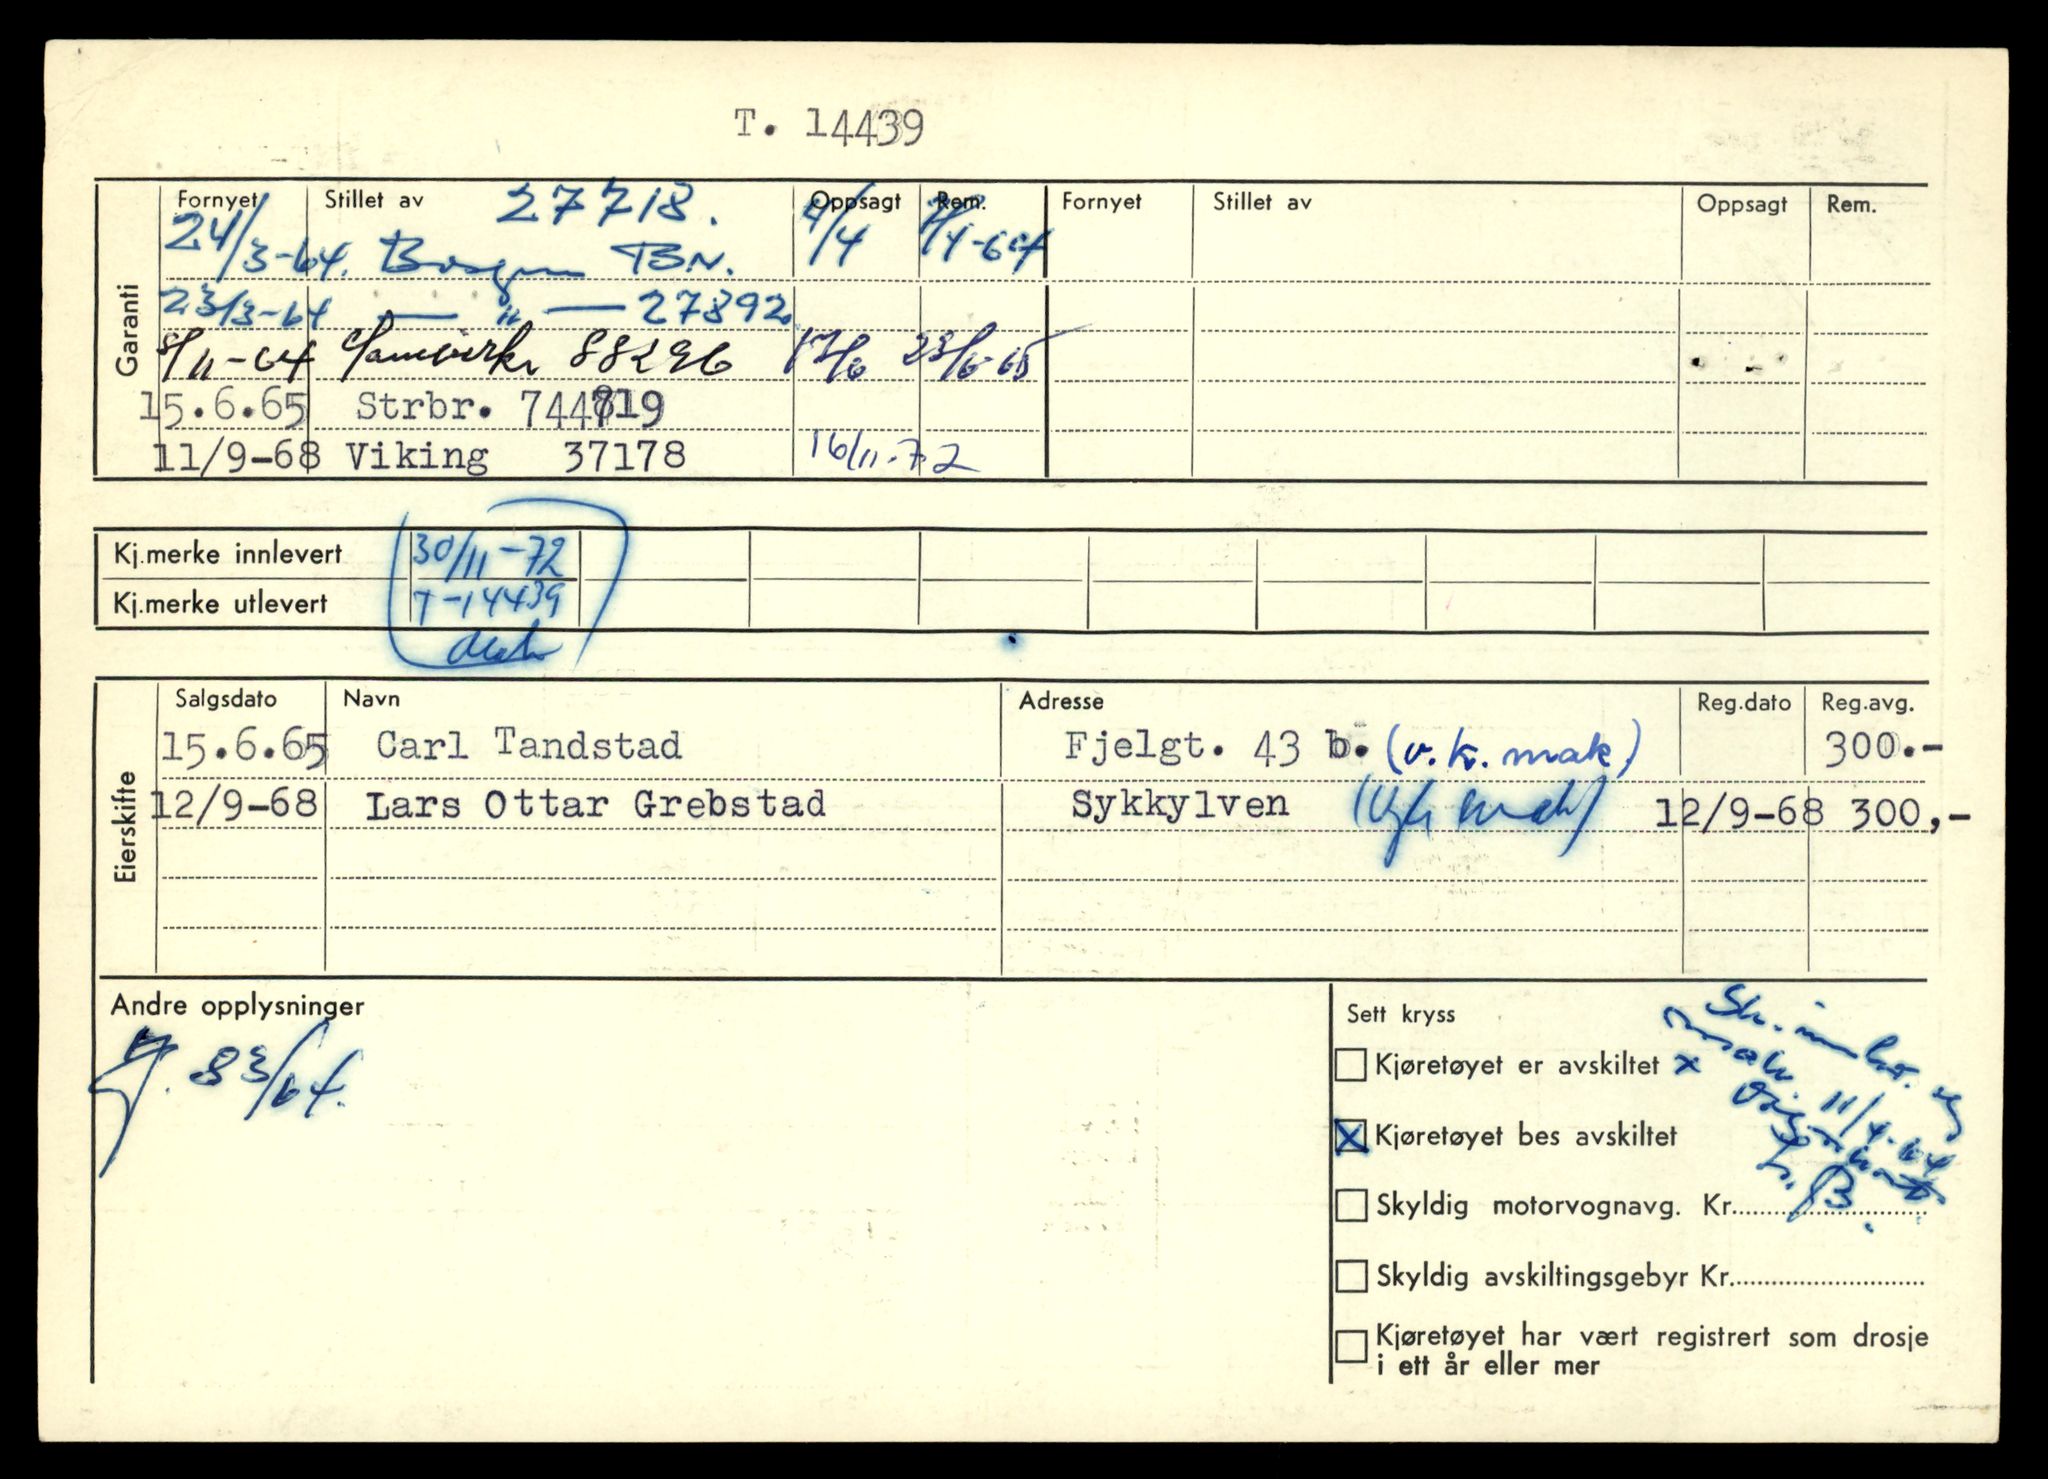 T. 14439
Fornyet Stillet av 27718. Oppsagt Rem. Fornyet Stillet av Oppsagt Rem.
24/3-64. BN. 9/4 /4-64
Garanti
23/3-64 — " — 27892
/11-64 Samvirke 88296 17/6 23/6-65
15.6.65 Strbr. 744719
11/9-68 Viking 37178 16/11-72
Kj.merke innlevert 30/11-72
Kj.merke utlevert T-14439
Eierskifte
Salgsdato Navn Adresse Reg.dato Reg.avg.
15.6.65 Carl Tandstad Fjelgt. 43 b. (v.k. mak) 300.-
12/9-68 Lars Ottar Grebstad Sykkylven 12/9-68 300,-
Andre opplysninger
83/64.
Sett kryss
Kjøretøyet er avskiltet x
X Kjøretøyet bes avskiltet
11/4-64
Skyldig motorvognavg. Kr.
Skyldig avskiltingsgebyr Kr.
Kjøretøyet har vært registrert som drosje
i ett år eller mer